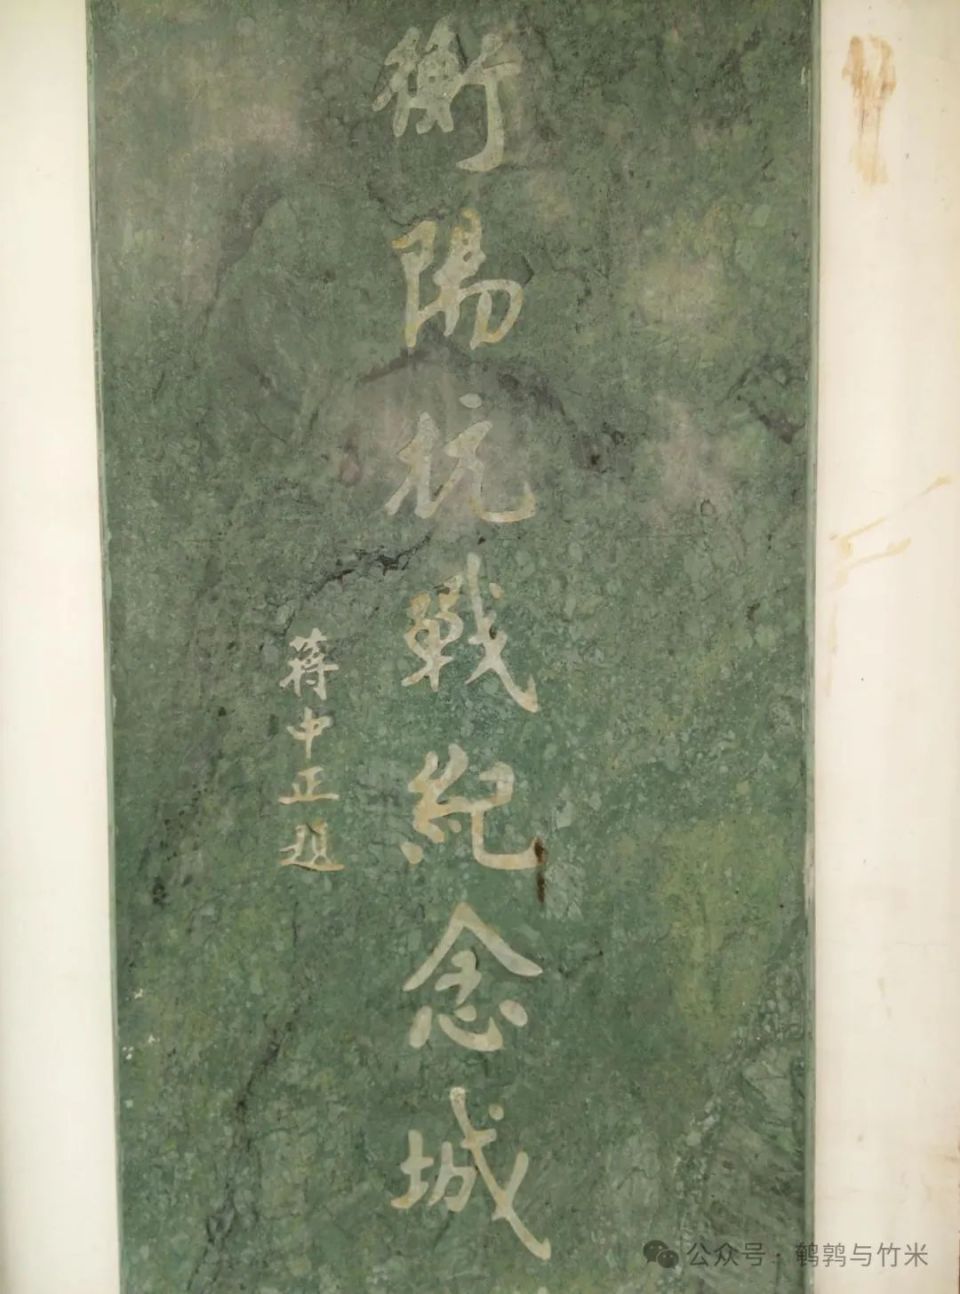 衡陽抗戰紀念城
蔣中正題
公众号·鹌鹑与竹米